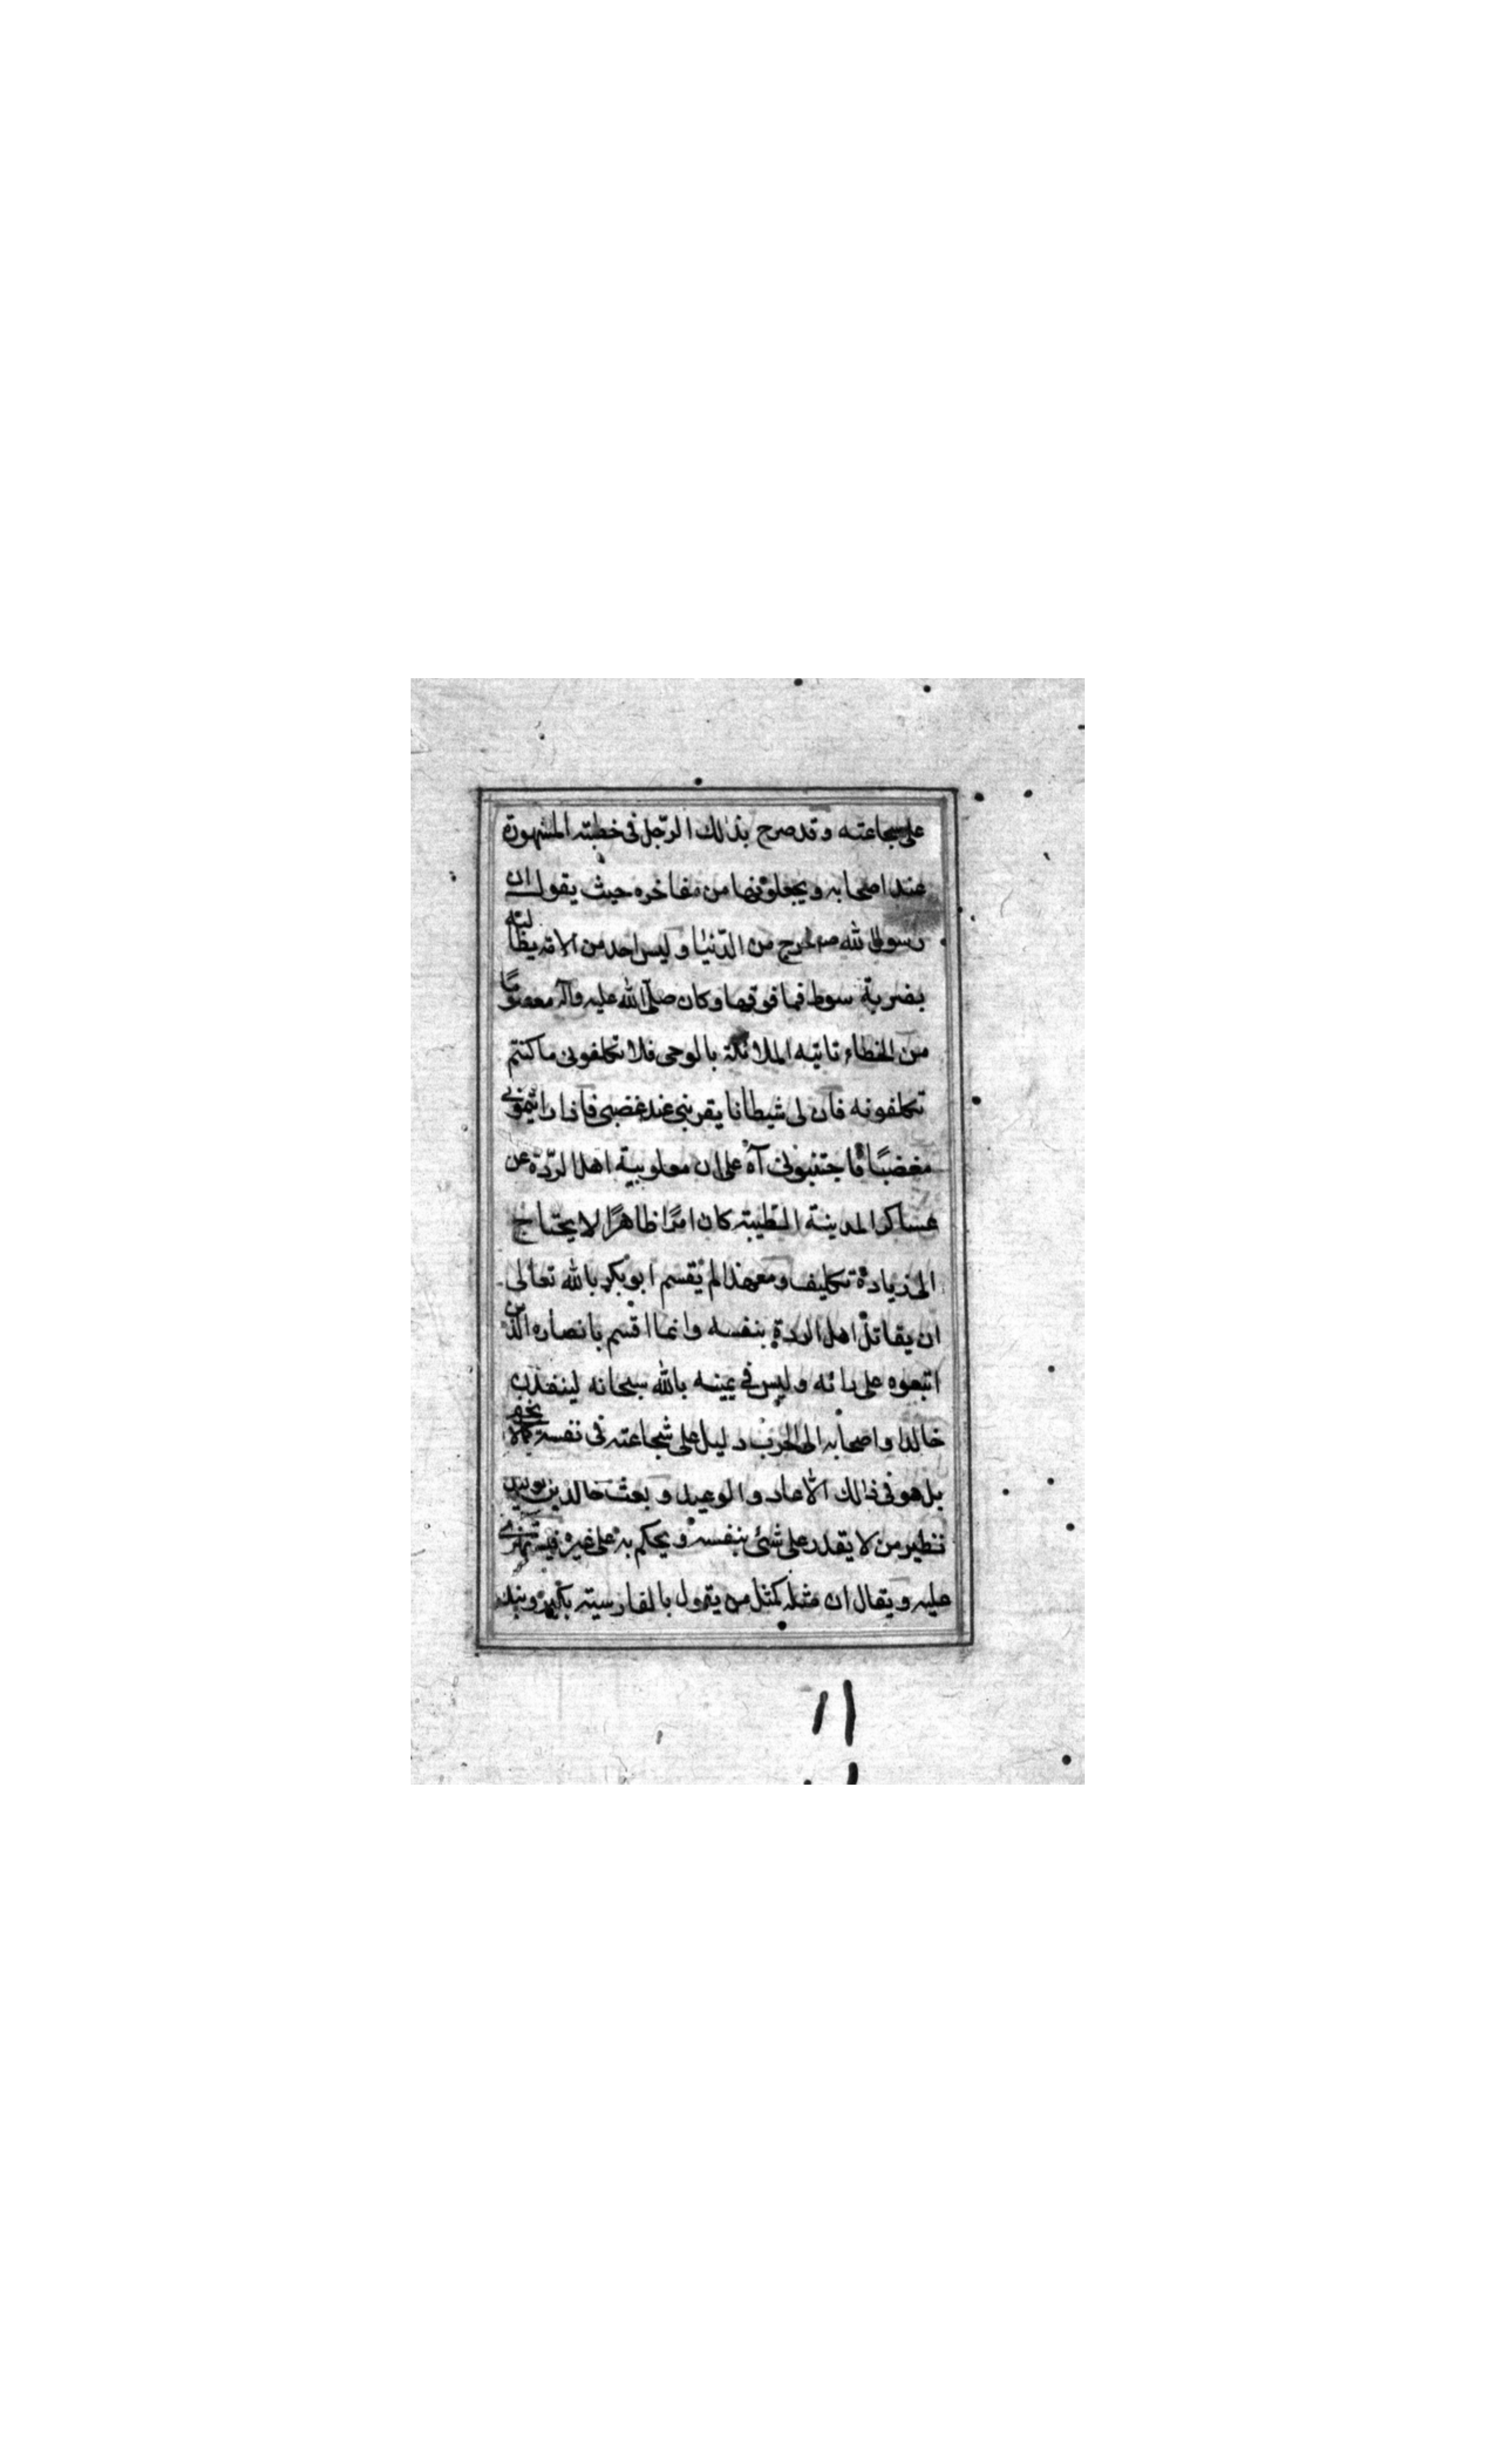 على شجاعته وقد صرح بذلك الرّجل فى خطبته المشهورة
عند اصحابه ويجعلونها من مفاخره حيث يقول ان
رسول الله صم خرج من الدّنيا وليس احد من الامّة يطالبه
بضربة سوط فما فوقها وكان صلّى الله عليه وآله معصومًا
من الخطاء تاتيه الملائكة بالوحى فلا تكلفونى ما كنتم
تكلفونه فان لى شيطانا يقربنى عند غضبى فاذا رايتمونى
مغضبًا فاجتنبونى آه على ان مغلوبية اهل الردّة عن
عساكر المدينة الطيبة كان امرًا ظاهرًا لا يحتاج
الى زيادة تكليف ومعهذا لم يقسم ابو بكر بالله تعالى
ان يقاتل اهل الردة بنفسه وانما اقسم بانصاره الذين
اتبعوه على رائه وليس فى يمينه بالله سبحانه لينفذن
خالدا واصحابه الى الحرب دليل على شجاعته فى نفسه
بل هو فى ذلك الأعاد والوعيد وبعث خالد بن
نظير من لا يقدر على شئ بنفسه ويحكم به على غيره
عليه ويقال ان مثله كمثل من يقول بالفارسيته
١١